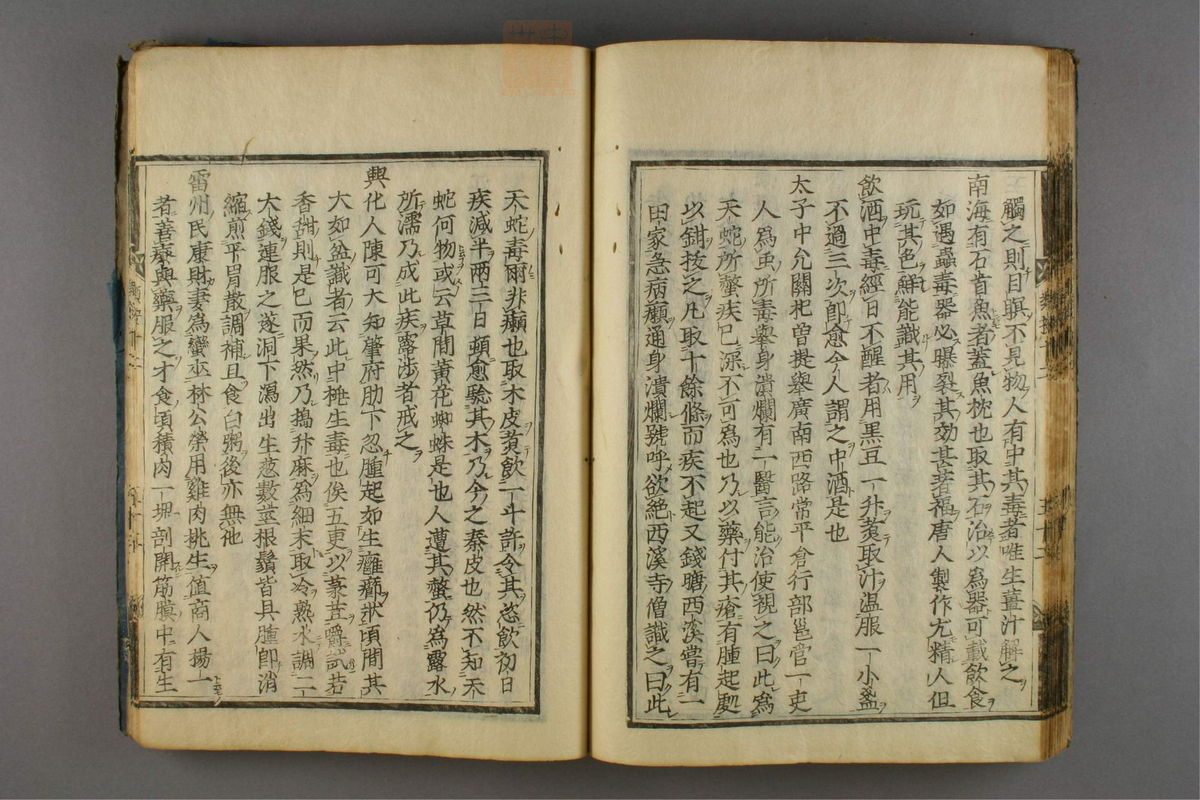 觸之則目瞑不見物人有中其毒者唯生薑汁解之
南海有石首魚者蓋魚枕也取其石治以爲器可載飲食
如遇蟲毒器必曝裂其効甚著福唐人製作尤精人但
玩其色鮮能識其用
飲酒中毒經日不醒者用黑豆一升煑取汁温服一小盞
不過三次即愈今人謂之中酒是也
太子中允關杞曾提舉廣南西路常平倉行部邕管一吏
人爲虫所毒舉身潰爛有一醫言能治使視之曰此爲
天蛇所螫疾已深不可爲也乃以藥付其瘡有腫起處
以鉗拔之凡取十餘條而疾不起又錢塘西溪嘗有一
田家急病癩通身潰爛號呼欲絶西溪寺僧識之曰此
天蛇毒爾非癩也取木皮煑飲一斗許令其恣飲初日
疾減半兩三日頓愈驗其木乃今之秦皮也然不知天
蛇何物或云草間黄花蜘蛛是也人遭其螫仍爲露水
所濡乃成此疾露渉者戒之
興化人陳可大知肇府肋下忽腫起如生癰癤狀頃間其
大如盆識者云此中桃生毒也俟五更以菉荳嚼試若
香甜則是已而果然乃搗升麻爲細末取冷熟水調二
大錢連服之遂洞下瀉出生葱數莖根鬚皆具腫即消
縮煎平胃散調補且食白粥後亦無他
雷州民康財妻為蠻巫林公榮用雞肉桃生值商人揚一
者善療與藥服之才食頃積肉一塊剖開筋膜中有生